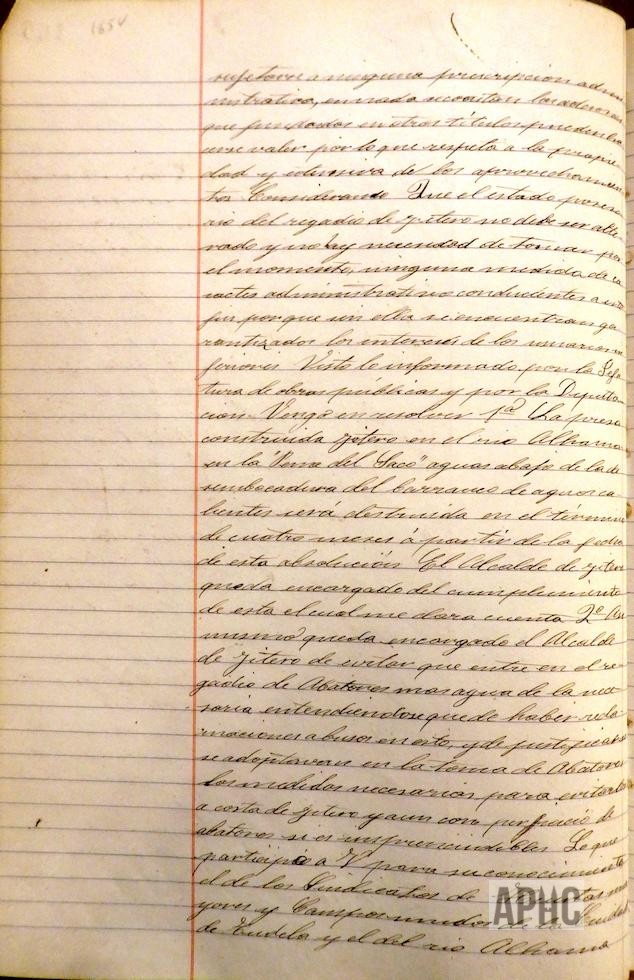 165v
sujetarse a ninguna prescripcion admi
nistrativa, en nada coartan los derechos
que fundados en otros títulos puedan ha
cerse valer por lo que respeta a la propie
dad y estensiva de los aprovechamien
tos Considerando Que el estado poseso
rio del regadio de Fitero no debe ser alte
rado y no hay necesidad de tomar por
el momento, ninguna medida de ca
racter administrativo conducentes a este
fin porque sin ella se encuentran ga
rantizados los intereses de los usuarios in
feriores Visto lo informado por la Gefa
tura de obras públicas y por la Diputa
cion Vengo en resolver 1º La presa
construida Fitero en el rio Alhama
en la "Pena del Saco" aguas abajo de la de
sembocadura del barranco de aguas ca
lientes será destruida en el término
de cuatro meses á partir de la fecha
de esta absolución El Alcalde de Fitero
queda encargado del cumplimiento
de esta el cual me dara cuenta 2º Asi
mismo queda encargado el Alcalde
de Fitero de evitar que entre en el re
gadio de Abatores mas agua de la nece
saria entendiendose que de haber recla
maciones abusos en esto, y de justificarse
se adoptaran en la toma de Abatores
las medidas necesarias para evitarlo
a costa de Fitero y aun con perjuicio de
abatores si es imprescindibles Lo que
participo a V para su conocimiento
el de los Sindicatos de Huertas ma
yores y Campos unidos de la Ciudad
de Tudela y el del rio Alhama
APHC